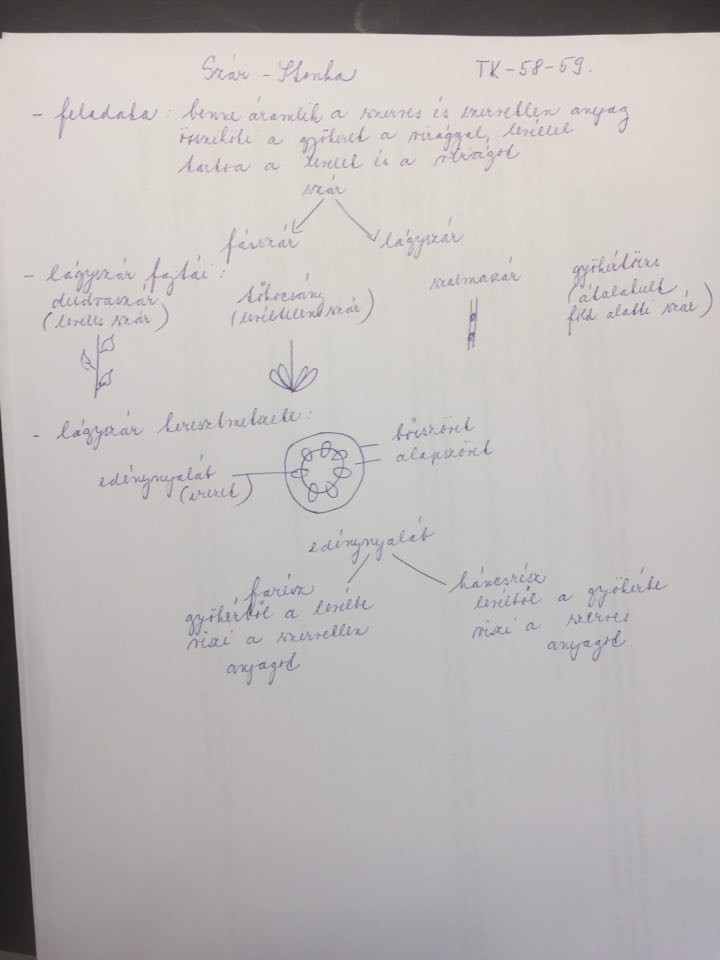 Szár - Stonka
TK-58-59.
- feladata: benne áramlik a szerves és szervetlen anyag
összeköti a gyökeret a virággal, levéllel
tartva a levelet és a virágot
szár
fásszár
lágyszár
- lágyszár fajtái:
dudvaszár
(leveles szár)
tőkocsány
(levéltelen szár)
szalmaszár
gyökértörzs
(átalakult
föld alatti szár)
- lágyszár keresztmetszete:
bőrszövet
alapszövet
edénynyaláb
(erezet)
edénynyaláb
farész
gyökérből a levélbe
viszi a szervetlen
anyagot
háncsrész
levélből a gyökérbe
viszi a szerves
anyagot